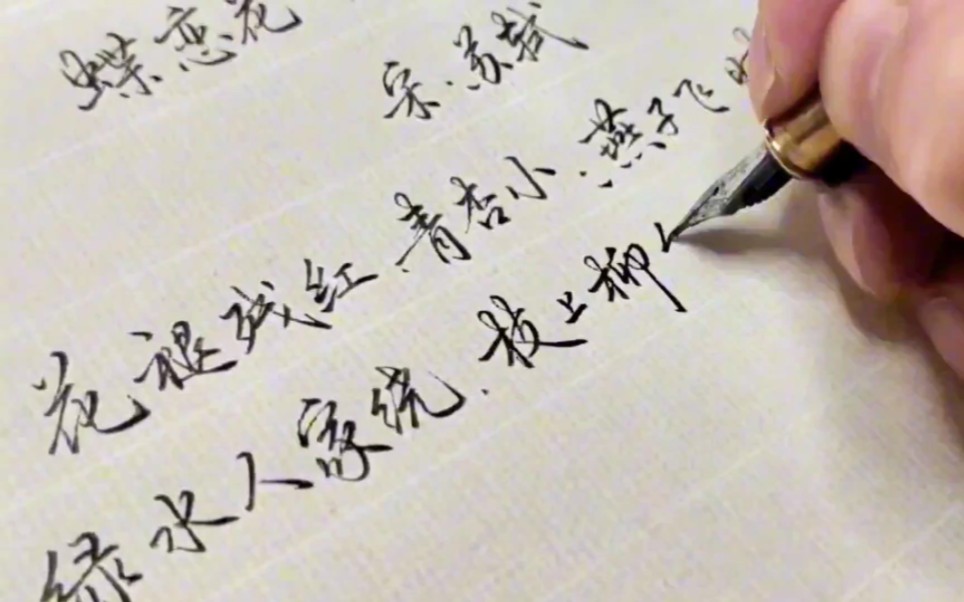 蝶恋花
宋·苏轼
花褪残红.青杏小.燕子飞时
绿水人家绕.枝上柳